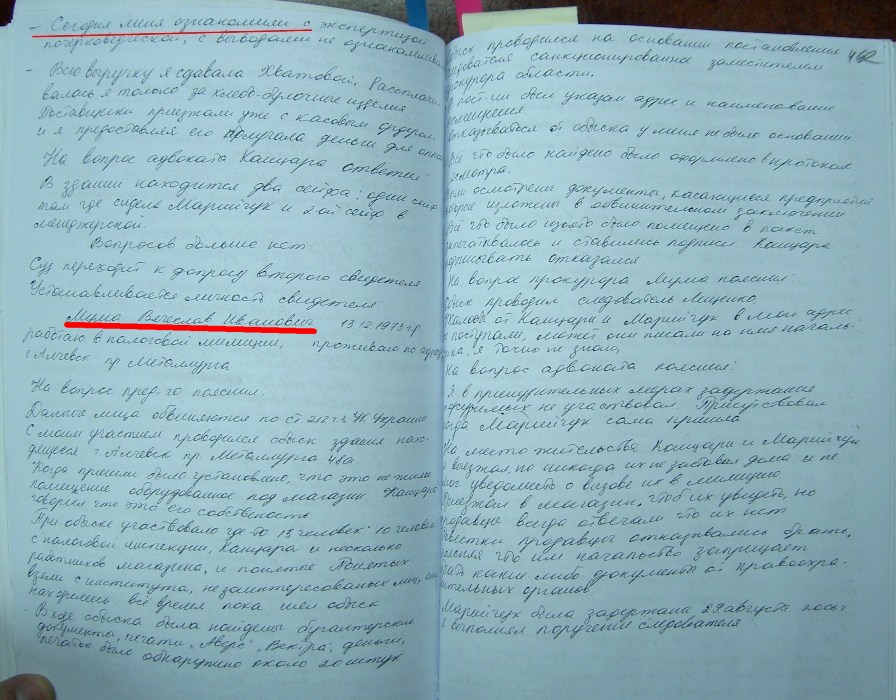 - Сегодня меня ознакомили с экспертизой
почерковедческой, с выводами не ознакамливали
- Всю выручку я сдавала Хватовой. Рассчиты
валась я только за хлебо-булочные изделия
Поставщики приезжали уже с касовым ордером
и я предоставляя его получала деньги для оплаты
На вопрос адвоката Каццара ответил:
В здании находится два сейфа: один сейф
там где сидела Марийчук и 2-ой сейф в
менеджерской.
Вопросов больше нет
Суд переходит к допросу второго свидетеля
Устанавливается личность свидетеля:
Мума Вячеслав Иванович 13.12.1973 г.р.
работаю в налоговой милиции, проживаю по адресу
г. Алчевск пр Металлурга
На вопрос пред-го пояснил:
Данные лица обвиняются по ст 212 ч 3 УК Украины
С моим участием проводился обыск здания нахо-
дящегося г. Алчевск пр. Металлургов 48а
Когда пришли было установлено, что это не жилое
помещение оборудованное под магазин. Каццара
говорил что это его собственность
При обыске участвовало где-то 13 человек: 10 человек
с налоговой инспекции, Каццара и несколько
работников магазина, и понятые. Понятых
взяли с института, не заинтересованых лиц, они
находились всё время пока шел обыск
- В ходе обыска были найдены бухгалтерские
документы, печати "Аверс", "Вектра", деньги,
печаток было обнаружено около 20 штук
462
Обыск проводился на основании постановления
следователя санкционированное заместителем
прокурора области.
В пост-ии был указан адрес и наименование
помещения
Отказываться от обыска у меня не было оснований
Всё что было найдено было оформлено в протокол
осмотра.
Были осмотрены документы, касающиеся предприятий
которые изложены в обвинительном заключении
Всё что было изъято было помещено в пакет
опечатывалось и ставились подписи. Каццара
подписывать отказался
На вопрос прокурора Мума пояснил:
Обыск проводил следователь Мищенко,
Жалоб от Каццари и Марийчук в мой адрес
не поступали, может они писали на имя началь-
ника, я точно не знаю,
На вопрос адвоката пояснил:
Я в принудительных мерах задержания
подсудимых не участвовал. Присутствовал
когда Марийчук сама пришла
На место жительства Каццари и Марийчук
я выезжал, но никогда их не заставал дома и не
мог уведомить о вызове их в милицию
Приезжал в магазин, чтоб их увидеть, но
продавцы всегда отвечали что их нет
Повестки продавцы отказывались брать,
поясняя что им начальство запрещает
брать какие-либо документы от правоохра-
нительных органов
Марийчук была задержана 29 августа
я выполнял поручение следователя